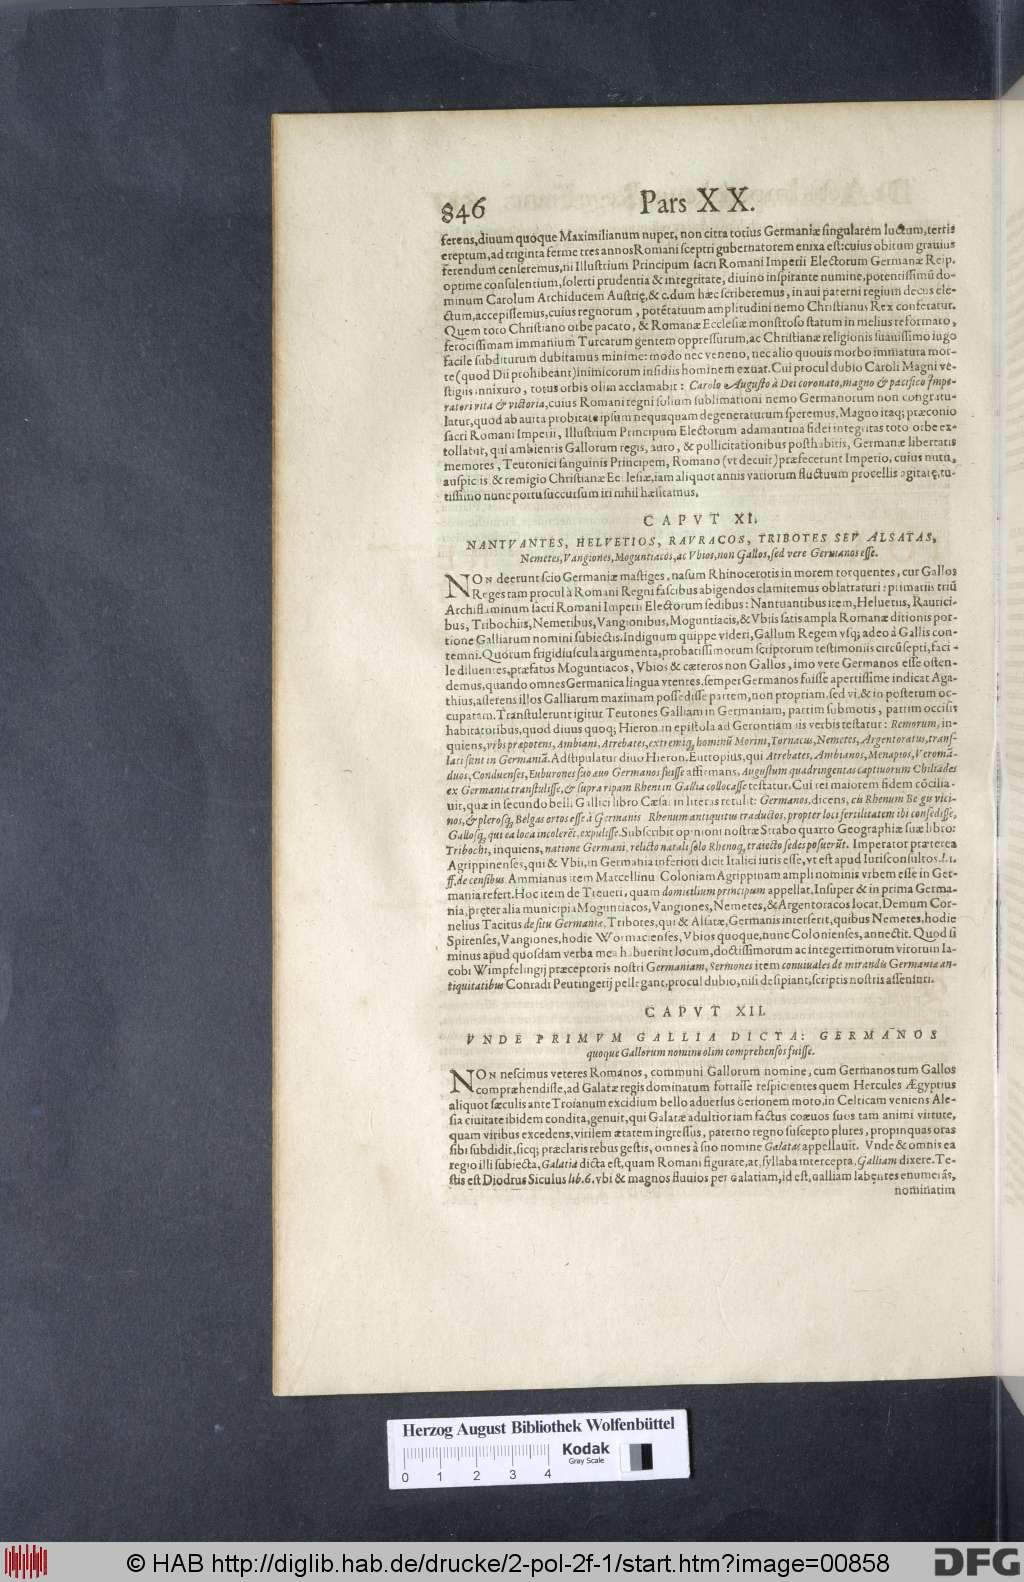 846 Pars XX.
ferens, divum quoque Maximilianum nuper, non citra totius Germaniæ singularem luctum, terris
ereptum, ad triginta ferme tres annos Romani sceptri gubernatorem enixa est: cuius obitum grauius
ferendum censeremus, ni Illustrium Principum sacri Romani Imperii Electorum Germanæ Reip.
optime consulentium, solerti prudentia & integritate, diuino inspirante numine, potentissimū do-
minum Carolum Archiducem Austrię, & c. dum hæc scriberemus, in aui paterni regium decus ele-
ctum, accepissemus, cuius regnorum, potētatuum amplitudini nemo Christianus Rex conferatur.
Quem toto Christiano orbe pacato, & Romanæ Ecclesiæ monstroso statum in melius reformato,
ferocissimam immanium Turcarum gentem oppressurum, ac Christianæ religionis suauissimo iugo
facile subditurum dubitamus minime: modo nec veneno, nec alio quouis morbo immatura mor-
te (quod Dii prohibeant) inimicorum insidiis hominem exuat. Cui procul dubio Caroli Magni ve-
stigiis innixuro, totus orbis olim acclamabit: Carolo Augusto à Deo coronato, magno & pacifico Impe-
ratori vita & victoria, cuius Romani regni solium sublimationi nemo Germanorum non congratu-
latur, quod ab auita probitate ipsum nequaquam degeneraturum speremus, Magno itaq; præconio
sacri Romani Imperii, Illustrium Principum Electorum adamantina fidei integritas toto orbe ex-
tollatur, qui ambientis Gallorum regis, auro, & pollicitationibus posthabitis, Germanæ libertatis
memores, Teutonici sanguinis Principem, Romano (vt decuit) præfecerunt Imperio, cuius nutu,
auspiciis & remigio Christianæ Ecclesiæ, iam aliquot annis variorum fluctuum procellis agitatę, tu-
tissimo nunc portu succursum iri nihil hæsitamus.
CAPVT XI.
NANTVANTES, HELVETIOS, RAVRACOS, TRIBOTES SEV ALSATAS,
Nemetes, Vangiones, Moguntiacos, ac Vbios, non Gallos, sed vere Germanos esse.
NON deerunt scio Germaniæ mastiges, nasum Rhinocerotis in morem torquentes, cur Gallos
Reges tam procul à Romani Regni fascibus abigendos clamitemus oblatraturi: primariis triū
Archiflaminum sacri Romani Imperii Electorum sedibus: Nantuantibus item, Heluetiis, Raurici-
bus, Tribochiis, Nemetibus, Vangionibus, Moguntiacis, & Vbiis satis ampla Romanæ ditionis por-
tione Galliarum nomini subiectis. Indignum quippe videri, Gallum Regem vsq; adeo à Gallis con-
temni. Quorum frigidiuscula argumenta, probatissimorum scriptorum testimoniis circūsepti, faci-
le diluentes, præfatos Moguntiacos, Vbios & cæteros non Gallos, imo vere Germanos esse osten-
demus, quando omnes Germanica lingua vtentes, semper Germanos fuisse apertissime indicat Aga-
thius, asserens illos Galliarum maximam possedisse partem, non propriam, sed vi, & in posterum oc-
cupatam. Transtulerunt igitur Teutones Galliam in Germaniam, partim submotis, partim occisis
habitatoribus, quod diuus quoq; Hieron. in epistola ad Gerontiam iis verbis testatur: Remorum, in-
quiens, vrbs præpotens, Ambiani, Atrebates, extremiq; hominū Morini, Tornacus, Nemetes, Argentoratus, trans-
lati sunt in Germaniā. Adstipulatur diuo Hieron. Eutropius, qui Atrebates, Ambianos, Menapios, Veromā-
duos, Conduenses, Euburones suo æuo Germanos fuisse affirmans, Augustum quadringentas captiuorum Chiliades
ex Germania transtulisse, & supra ripam Rheni in Gallia collocasse testatur. Cui rei maiorem fidem cōcilia-
uit, quæ in secundo belli Gallici libro Cæsar in literas retulit: Germanos, dicens, cū Rhenum Belgii vici-
nos, & plerosq; Belgas ortos esse à Germanis Rhenum antiquitus traductos, propter loci fertilitatem ibi consedisse,
Gallosq; qui ea loca incolerēt, expulisse. Subscribit opinioni nostræ Strabo quarto Geographiæ suæ libro:
Tribochi, inquiens, natione Germani, relicto natali solo Rhenoq; traiecto sedes posuerūt. Imperator præterea
Agrippinenses, qui & Vbii, in Germania inferiori dicit Italici iuris esse, vt est apud Iurisconsultos. l. 1.
ff. de censibus Ammianus item Marcellinus Coloniam Agrippinam ampli nominis vrbem esse in Ger-
mania refert. Hoc item de Treueri, quam domicilium principum appellat. Insuper & in prima Germa-
nia, pręter alia municipia Moguntiacos, Vangiones, Nemetes, & Argentoracos locat. Demum Cor-
nelius Tacitus de situ Germaniæ, Tribotes, qui & Alsatæ, Germanis interserit, quibus Nemetes, hodie
Spirenses, Vangiones, hodie Wormacienses, Vbios quoque, nunc Colonienses, annectit. Quod si
minus apud quosdam verba mea habuerint locum, doctissimorum ac integerrimorum virorum Ia-
cobi Wimpfelingij præceptoris nostri Germaniam, Sermones item conuiuales de mirandis Germaniæ an-
tiquitatibus Conradi Peutingerij pellegant, procul dubio, nisi desipiant, scriptis nostris assentiri.
CAPVT XII.
VNDE PRIMVM GALLIA DICTA: GERMANOS
quoque Gallorum nomine olim comprehensos fuisse.
NON nescimus veteres Romanos, communi Gallorum nomine, cum Germanos tum Gallos
compræhendisse, ad Galatæ regis dominatum fortasse respicientes quem Hercules Ægyptius
aliquot sæculis ante Troianum excidium bello aduersus Gerionem moto, in Celticam veniens Ale-
sia ciuitate ibidem condita, genuit, qui Galatæ adultior iam factus coæuos suos tam animi virtute,
quam viribus excedens, virilem ætatem ingressus, paterno regno suscepto plures, propinquas oras
sibi subdidit, sicq; præclaris rebus gestis, omnes à suo nomine Galatas appellauit. Vnde & omnis ea
regio illi subiecta, Galatia dicta est, quam Romani figurate, at, syllaba intercepta, Galliam dixere. Te-
stis est Diodrus Siculus lib. 6. vbi & magnos fluuios per Galatiam, id est, Galliam labentes enumerās,
nominatim
Herzog August Bibliothek Wolfenbüttel
0 1 2 3 4
Kodak
Gray Scale
© HAB http://diglib.hab.de/drucke/2-pol-2f-1/start.htm?image=00858
DFG